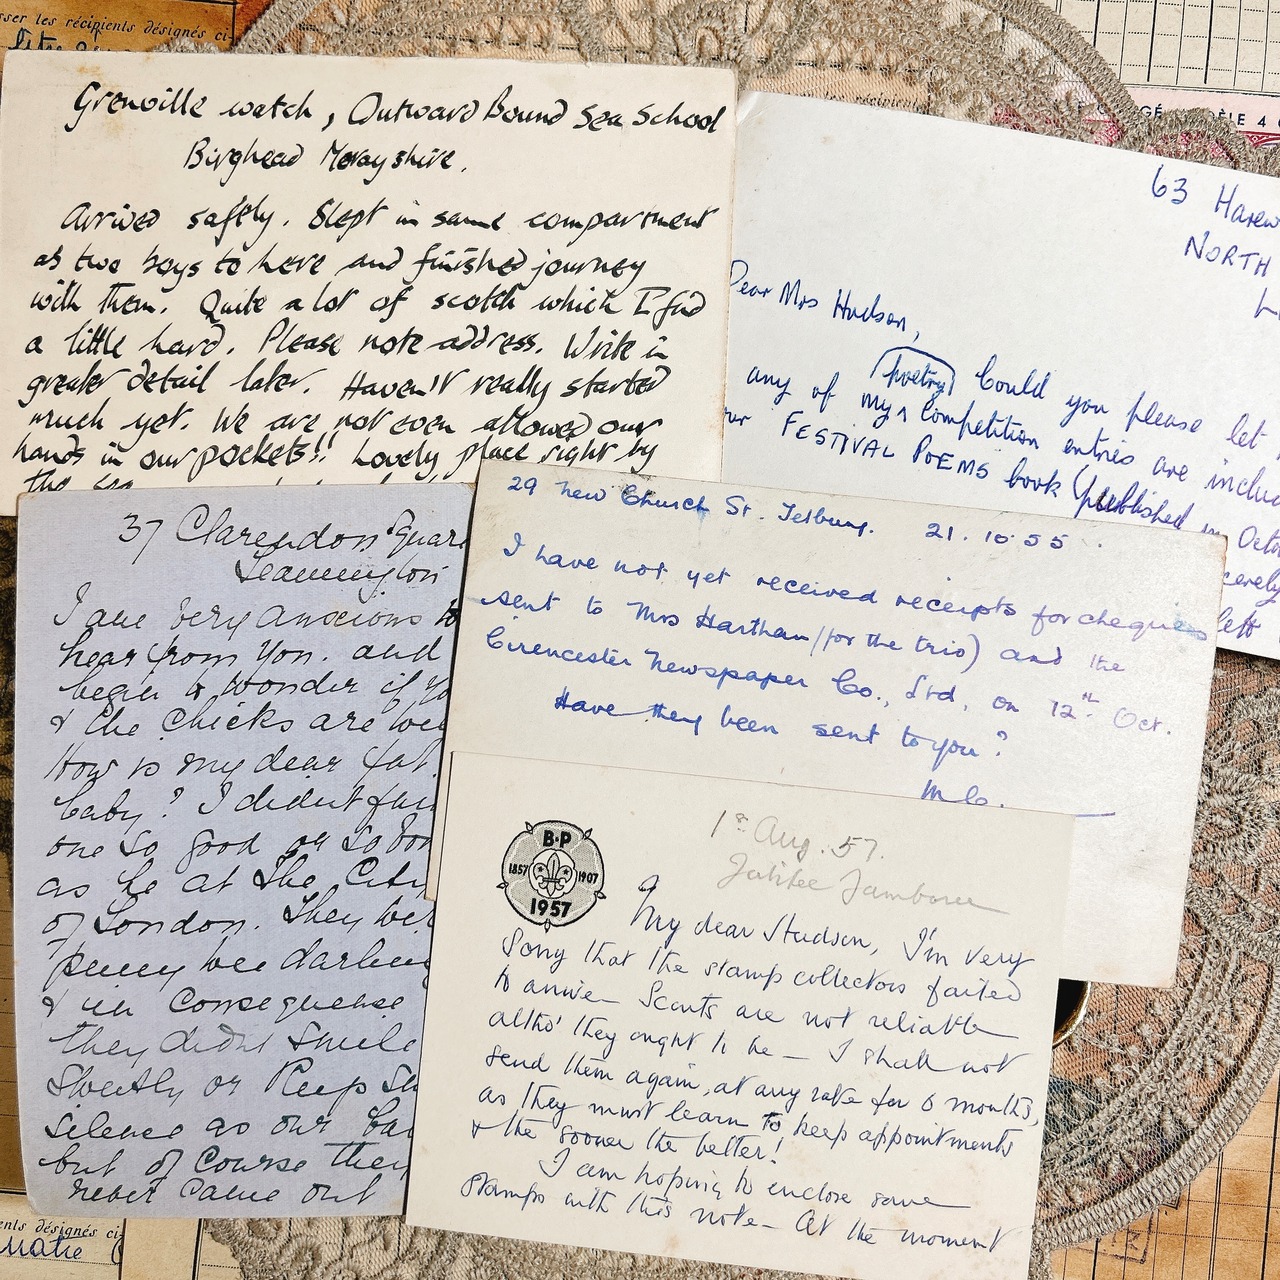 sser les récipients désignés ci-
Grenville watch, Outward Bound Sea School
Burghead Morayshire.
Arrived safely. Slept in same compartment
as two boys to here and finished journey
with them. Quite a lot of scotch which I find
a little hard. Please note address. Write in
greater detail later. Haven't really started
much yet. We are not even allowed our
hands in our pockets!! Lovely place right by
the sea
63 Harew
NORTH
Dear Mrs Hudson,
Could you please let
any of my poetry Competition entries are inclu
FESTIVAL POEMS book (published in Octo
cerely
37 Clarendon Square
Leamington
I am very anxious to
hear from you. and
begin to wonder if yo
& the chicks are we
How is my dear fat
baby? I didnt
one so good or so bon
as he at The City
of London. They we
penny wee darling
& in consequence
they didnt smile
sweetly or keep
silence as our
but of course they
never came out
29 New Church St. Tetbury. 21.10.55
I have not yet received receipts for cheques
sent to Mrs Hartham (for the trio) and the
Cirencester Newspaper Co., Ltd, on 12th Oct.
Have they been sent to you?
B-P
1857 1907
1957
1st Aug. 57.
Jubilee Jamboree
My dear Hudson, I'm very
Sorry that the stamp collectors failed
to arrive – Scouts are not reliable
altho' they ought to be – I shall not
send them again, at any rate for 6 months,
as they must learn to keep appointments
& the sooner the better!
I am hoping to enclose some
stamps with this note – At the moment
ents désignés ci